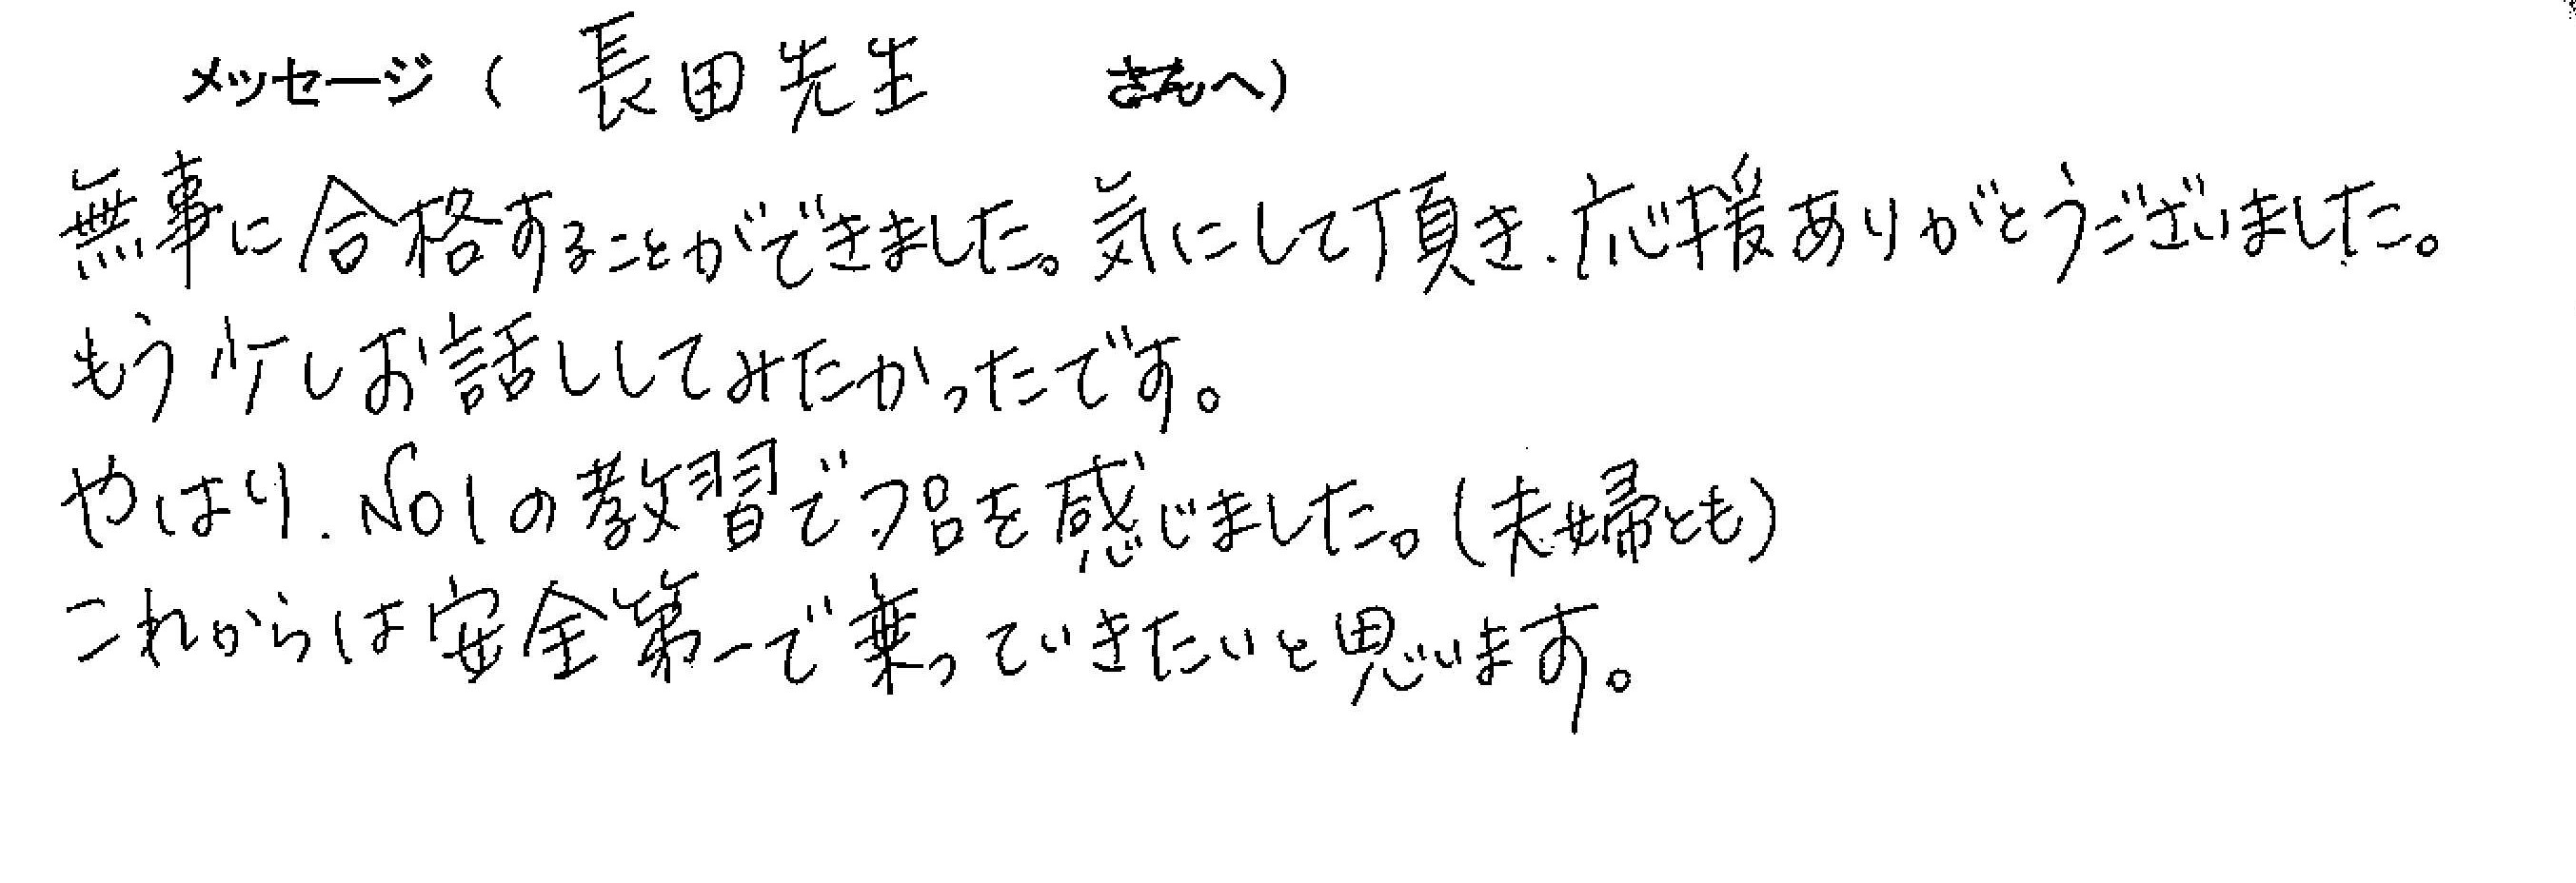 メッセージ ( 長田先生 さんへ)
無事に合格することができました。気にして頂き.応援ありがとうございました。
もう少しお話ししてみたかったです。
やはり.No1の教習で品を感じました。(夫婦とも)
これからは安全第一で乗っていきたいと思います。